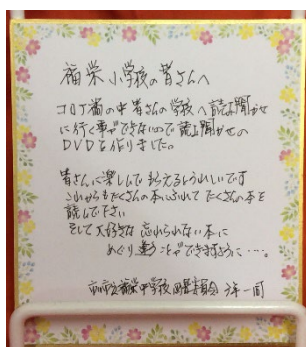 福栄小学校の皆さんへ
コロナ禍の中皆さんの学校へ読み聞かせ
に行く事ができないので読み聞かせの
DVDを作りました。
皆さんに楽しんでもらえるとうれしいです
これからもたくさんの本にふれて たくさんの本を
読んで下さい
そして大好きな 忘れられない本に
めぐり逢うことができますように…。
市川市立福栄中学校 図書委員会 3年一同